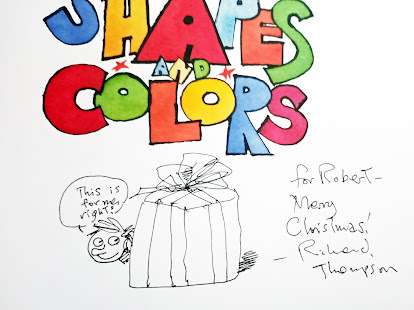 SHAPES
AND
COLORS
This is
for me,
right?
for Robert–
Merry
Christmas!
– Richard
Thompson